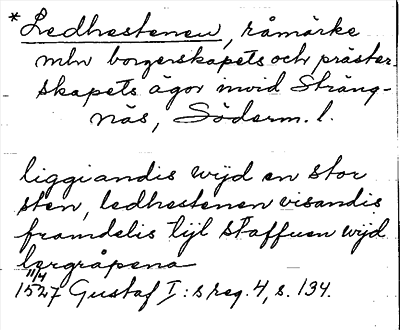 * Ledhestenen, råmärke
mln borgerskapets och präster-
skapets ägor invid Sträng-
näs, Söderm. l.
liggiandis wijd en stor
sten, ledhestenen visandis
framdelis tijl staffuen wijd
bergråpena
11/4
1527 Gustaf I:s reg. 4, s. 134.